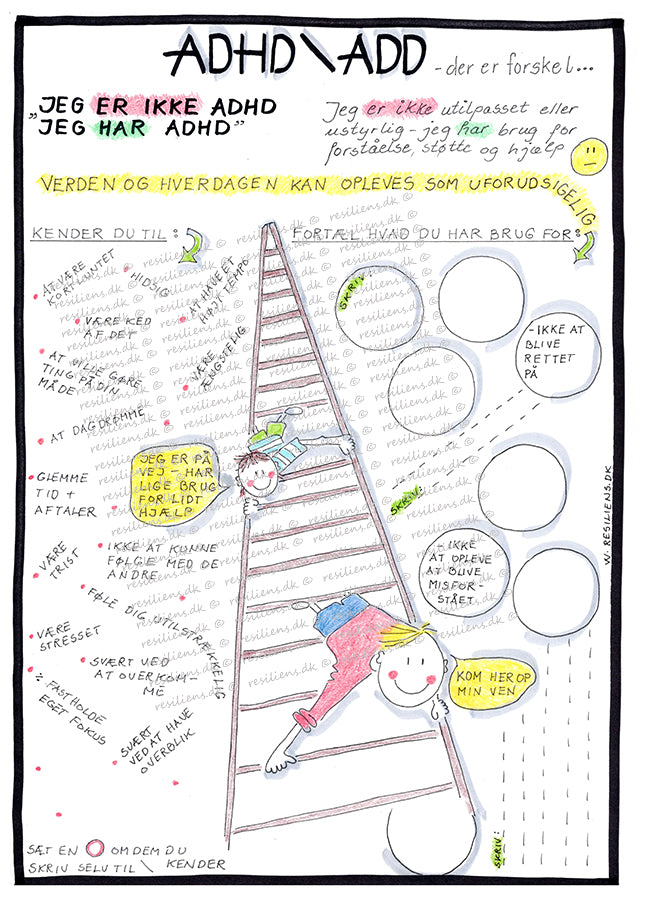 ADHD\ADD - der er forskel...
„JEG ER IKKE ADHD
JEG HAR ADHD”
Jeg er ikke utilpasset eller
ustyrlig - jeg har brug for
forståelse, støtte og hjælp
VERDEN OG HVERDAGEN KAN OPLEVES SOM UFORUDSIGELIG
KENDER DU TIL:
AT VÆRE
KORTLUNTET
HIDSIG
AT HAVE ET
HØJT TEMPO
VÆRE KED
AF DET
VÆRE
ÆNGSTELIG
AT VILLE GØRE
TING PÅ DIN
MÅDE
AT DAGDRØMME
GLEMME
TID +
AFTALER
JEG ER PÅ
VEJ - HAR
LIGE BRUG
FOR LIDT
HJÆLP
VÆRE
TRIST
IKKE AT KUNNE
FØLGE MED DE
ANDRE
FØLE DIG UTILSTRÆKKELIG
VÆRE
STRESSET
SVÆRT VED
AT OVERKOM-
ME
÷ FASTHOLDE
EGET FOKUS
SVÆRT
VED AT HAVE
OVERBLIK
SÆT EN O OM DEM DU
KENDER
SKRIV SELV TIL \
FORTÆL HVAD DU HAR BRUG FOR:
SKRIV
- IKKE AT
BLIVE
RETTET
PÅ
SKRIV:
IKKE
AT OPLEVE
AT BLIVE
MISFOR-
STÅET
KOM HER OP
MIN VEN
SKRIV:
W. RESILIENS.DK
resiliens.dk ©